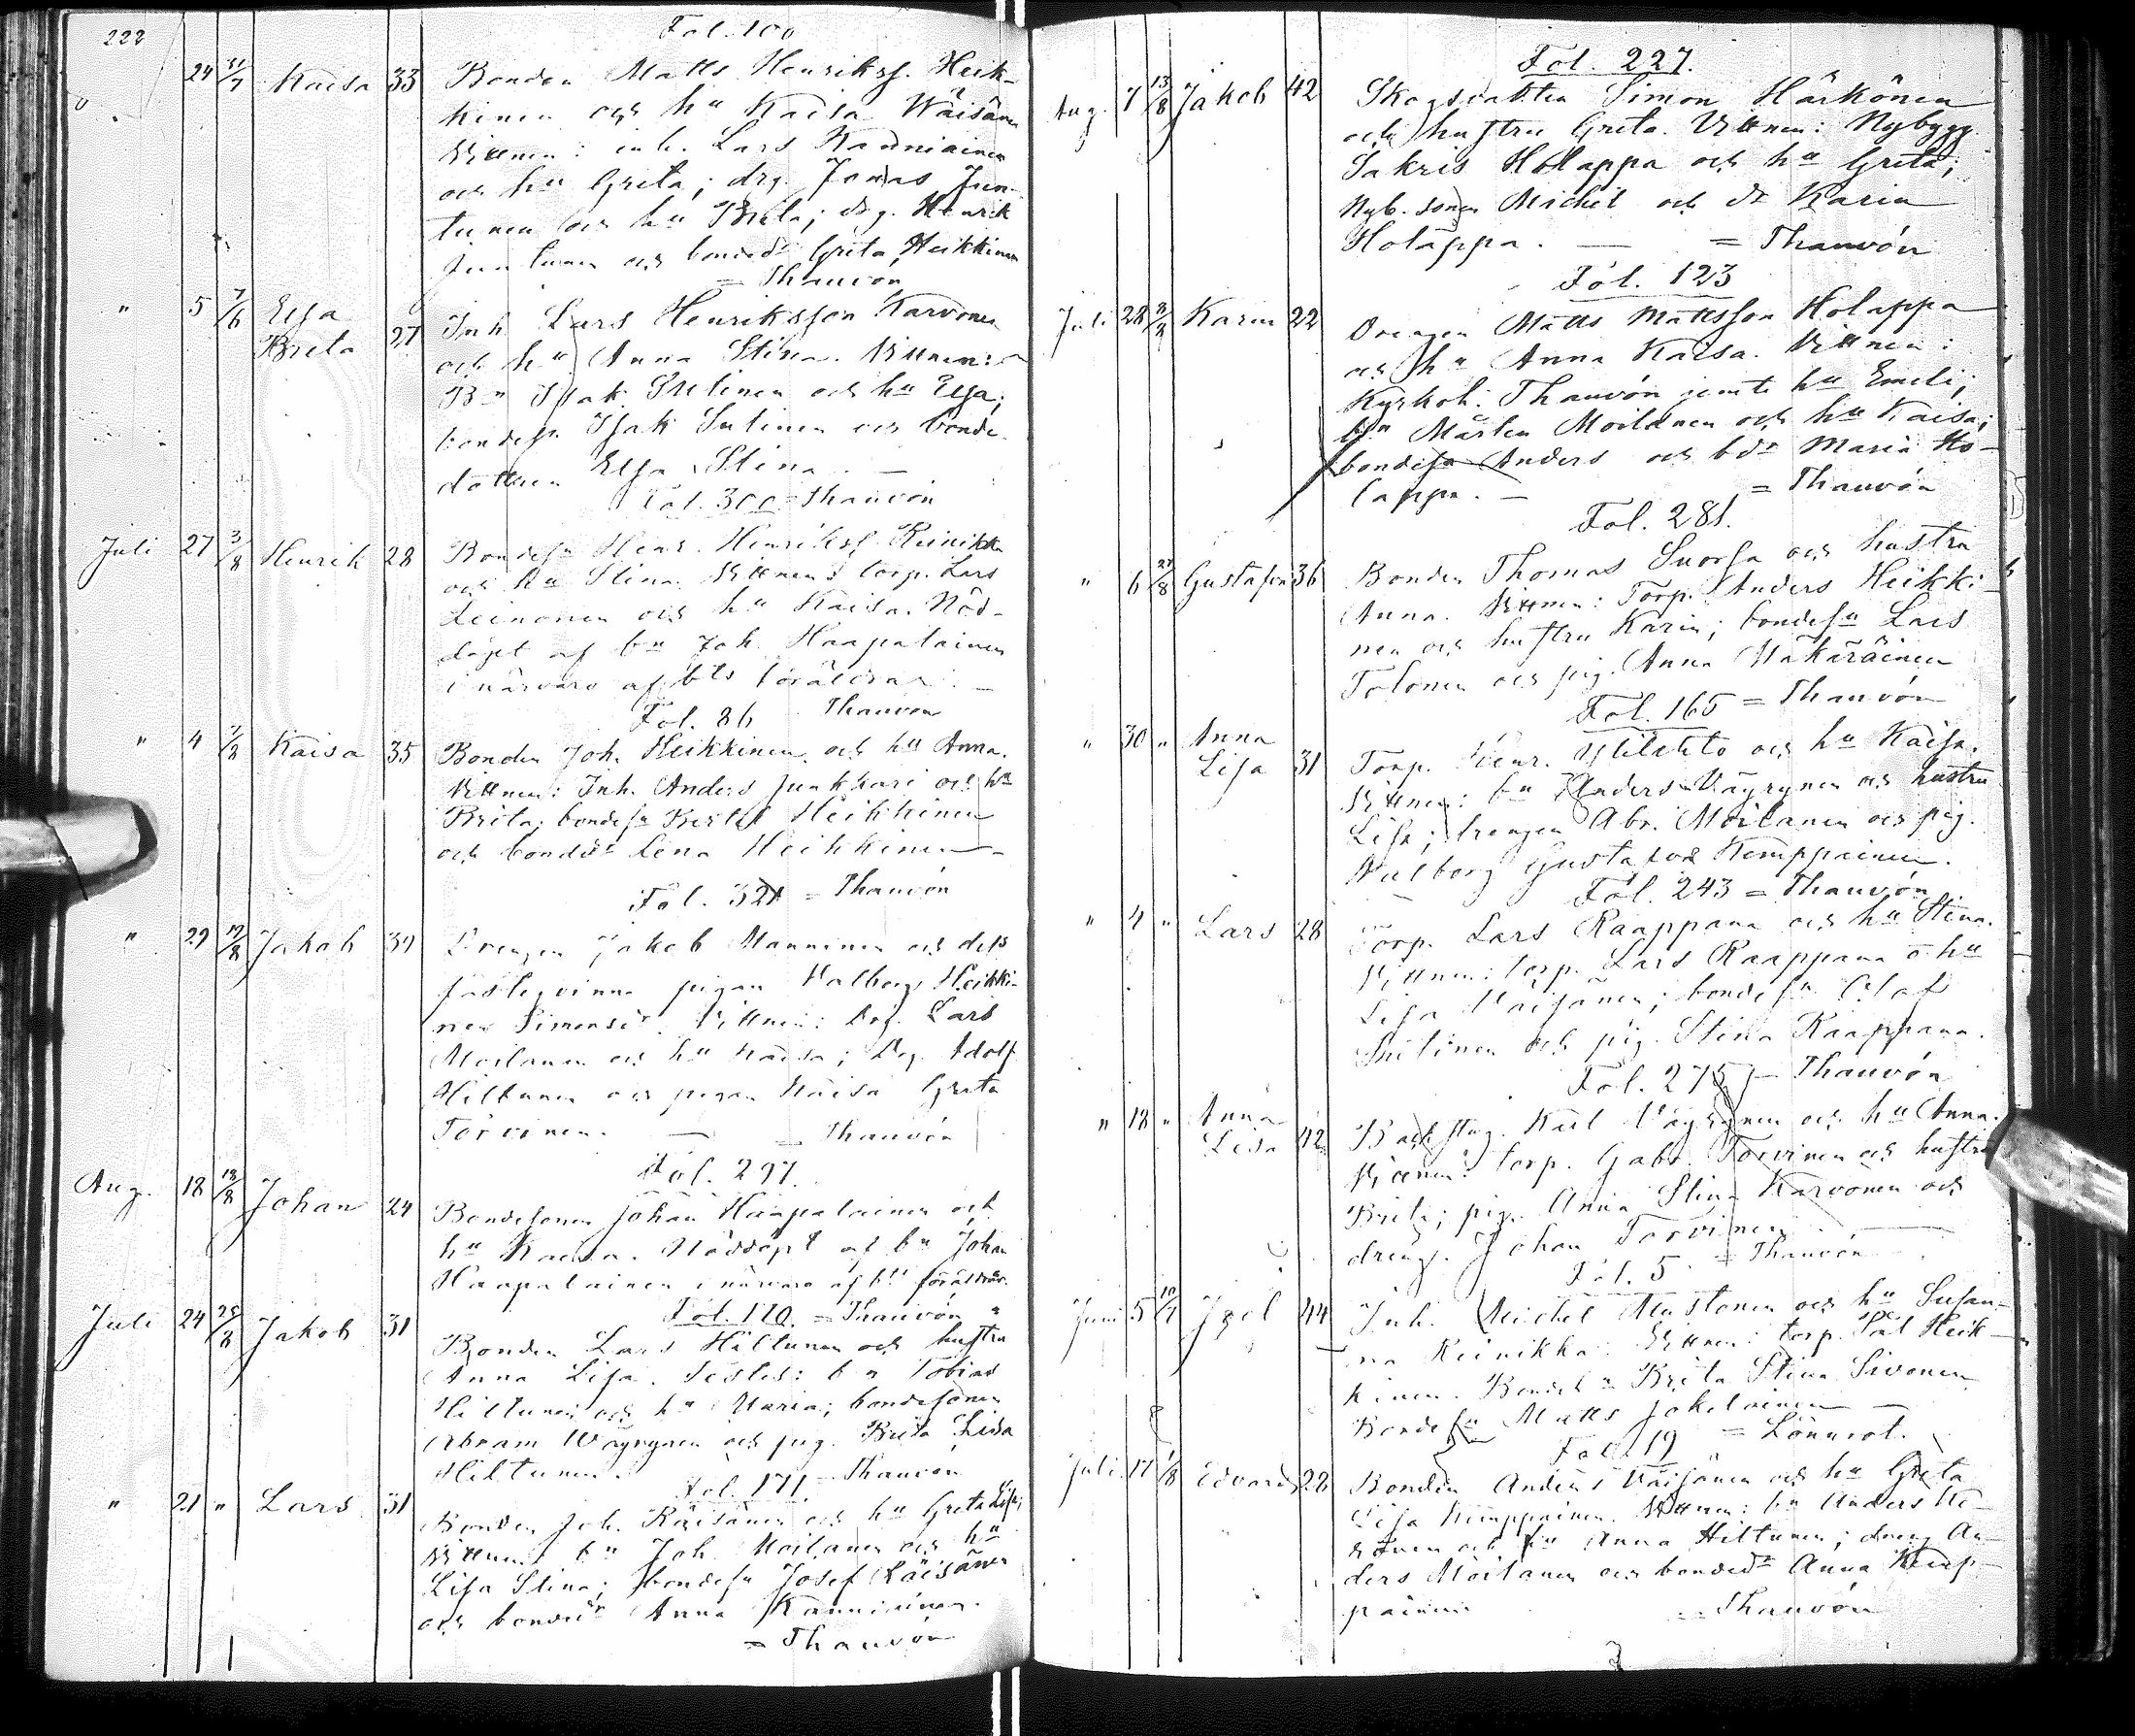 222
Fol. 100
24 31/7 Kaisa 33 Bonden Matts Henrikss. Heik-
kinen och hu Kaisa Wäisänen
Vittnen: inh. Lars Kanniainen
och hu Greta; drg. Jonas Jun-
tunen och hu Brita; drg. Henrik
Juntunen och bonded. Greta Heikkinen
= Thauvón
" 5 7/6 Elsa Inh. Lars Henriksson Karvonen
Brita 27 och hu Anna Stina. Vittnen:
Bn Isak Sutinen och hu Elsa;
bondesn Isak Sutinen och bonde-
dottren Elsa Stina. —
Fol. 300 = Thauvón
Juli 27 3/8 Henrik 28 Bondesn Henr. Henrikss. Reinikka
och hu Stina. Vittnen: torp. Lars
Leinonen och hu Kaisa. Nöd-
döpt af bn Joh. Haapalainen
i närvaro af bts föräldrar. —
Fol. 86 Thauvón
" 4 7/8 Kaisa 35 Bonden Joh. Heikkinen och hu Anna.
Vittnen: Inh. Anders Junkkari och hu
Brita; bondesn Kertel Heikkinen
och bondedr Lena Heikkinen —
Fol. 321 = Thauvón
" 29 12/8 Jakob 39 Drengen Jakob Manninen och dess
fästeqvinna pigan Valborg Heikki-
nen Simonsdr. Vittnen: Drg. Lars
Moilanen och hu Kaisa; Drg. Adolf
Hiltunen och pigan Kaisa Greta
Torvinen. — = Thauvón
Fol. 297.
Aug. 18 18/8 Johan 24 Bondesonen Johan Haapalainen och
hu Kaisa. Nöddöpt af bn Johan
Haapalainen i närvaro af bts föräldrar.
Fol. 170. = Thauvón
Juli 24 25/8 Jakob 31 Bonden Lars Hiltunen och hustru
Anna Lisa. Testes: bn Tobias
Hiltunen och hu Maria; bondesonen
Abram Wäyrynen och pig. Brita Lisa
Hiltunen. Thauvón
Fol. 171.
" 21 " Lars 31 Bonden Joh. Räisänen och hu Greta Lisa;
Vittnen: bn Joh. Moilanen och hu
Lisa Stina; bondesn Josef Räisänen
och bondedr Anna Kanniainen.
= Thauvón
Fol. 227.
Aug. 7 13/8 Jakob 42 Skogsvakten Simon Härkönen
och hustru Greta. Vittnen: Nybygg.
Sakris Holappa och hu Greta;
Nyb. sonen Michel och dr Karin
Holappa. — = Thauvón
Fol. 123
Juli 28 Karin 22 Drengen Matts Mattsson Holappa
och hu Anna Kaisa. Vittnen:
Kyrkoh. Thauvón jemte hu Emeli;
bn Mårten Moilanen och hu Kaisa;
bondesn Anders och bdr Maria Ho-
lappa. — = Thauvón
Fol. 281.
" 6 27/8 Gustafva 36 Bonden Thomas Suorsa och hustru
Anna. Vittnen: Torp. Anders Heikki-
nen och hustru Karin; bondesn Lars
Tolonen och pig. Anna Wäkäräinen
Fol. 165 = Thauvón
" 30 " Anna Torp. Henr. och hu Kaisa.
Lisa 31 Vittnen: bn Anders Väyrynen och hustru
Lisa; drengen Abr. Moilanen och pig.
Walborg Gustafsdr Kemppainen.
Fol. 243 = Thauvón
" 4 " Lars 28 Torp. Lars Raappana och hu Stina.
Vittnen: torp. Lars Raappana o hu
Lisa Väisänen; bondesn Olof
Sutinen och pig. Stina Raappana.
Fol. 275 = Thauvón
" 18 " Anna Backstug. Karl Väyrynen och hu Anna.
Lisa 42 Vittnen: torp. Gabr. Torvinen och hustru
Brita; pig. Anna Stina Karvonen och
dreng. Johan Torvinen. —
Fol. 5 = Thauvón
Juni 5 10/7 Joel 44 Inh. Michel Mustonen och hu Susan-
na Reinikka. Vittnen: torp. Pål Heik-
kinen. Bonded. Brita Stina Sivonen
Bondesn Matts Jokelainen —
Fol. 19 = Lönnrot.
Juli 17 1/8 Edvard 28 Bonden Anders Väisänen och hu Greta
Lisa Kemppainen. Vittnen: bn Anders Ke-
ränen och hu Anna Hiltunen; dreng An-
ders Moilanen och bondedr Anna Kemp-
painen. = Thauvón